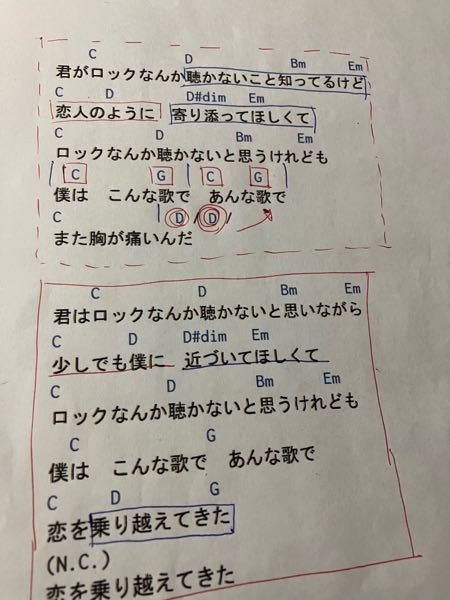 C D Bm Em
君がロックなんか聴かないこと知ってるけど
C D D#dim Em
恋人のように 寄り添ってほしくて
C D Bm Em
ロックなんか聴かないと思うけれども
C G C G
僕は こんな歌で あんな歌で
C D / D /
また胸が痛いんだ
C D Bm Em
君はロックなんか聴かないと思いながら
C D D#dim Em
少しでも僕に 近づいてほしくて
C D Bm Em
ロックなんか聴かないと思うけれども
C G
僕は こんな歌で あんな歌で
C D G
恋を乗り越えてきた
(N.C.)
恋を乗り越えてきた